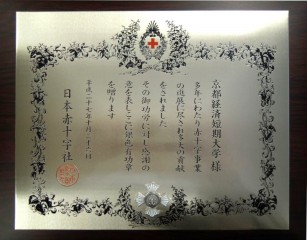 京都経済短期大学様
多年にわたり赤十字事業
の進展に尽くされ多大の貢献
をされました
その御功労に対し感謝の
意を表しここに銀色有功章
を贈ります
平成二十七年十月二十二日
日本赤十字社